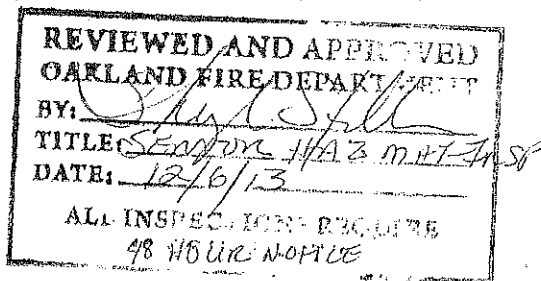 REVIEWED AND APPROVED
OAKLAND FIRE DEPARTMENT
BY:
TITLE: SENIOR HAZ MAT INSP
DATE: 12/6/13
ALL INSPECTIONS REQUIRE
48 HOUR NOTICE